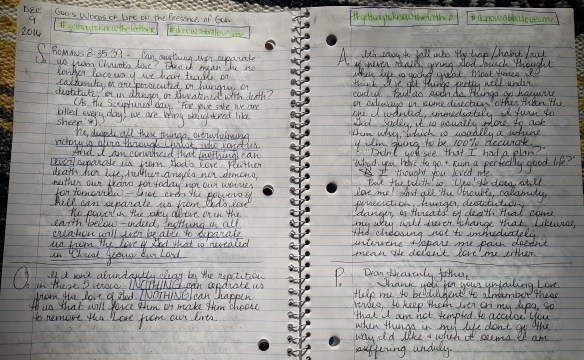 DEC
9
2016
God's Words of Life on the Presence of God
#gettingtoknowthefather
#iknowabbalovesme
S. Romans 8:35-39 - Can anything ever separate
us from Christ's love? Does it mean he no
longer loves us if we have trouble or
calamity, or are persecuted, or hungry, or
destitute, or in danger, or threatened with death?
(As the Scriptures say, "For your sake we are
killed every day; we are being slaughtered like
sheep.")
No, despite all these things, overwhelming
victory is ours through Christ, who loved us.
And I am convinced that nothing can
ever separate us from God's love. Neither
death nor life, neither angels nor demons,
neither our fears for today nor our worries
for tomorrow - not even the powers of
hell can separate us from God's love.
No power in the sky above or in the
earth below - indeed, nothing in all
creation will ever be able to separate
us from the love of God that is revealed
in Christ Jesus our Lord.
O. If it isn't abundantly clear by the repetition
in these 5 verses: NOTHING can separate us
from the love of God. NOTHING can happen
to us that will force Him or make Him choose
to remove His Love from our lives.
#gettingtoknowthefather
#iknowabbalovesme
A. It's easy to fall into the trap/habit/rut
of never really giving God much thought
when life is going great. Most times I
think I've got things pretty well under
control. But as soon as things go
or sideways or some direction other than the
one I wanted, immediately I turn to
God. Sadly, it is usually more to ask
Him why, which is usually a whine
if I'm going to be 100% accurate.
"Didn't you see that I had a plan?"
"Why'd you have to go & ruin a perfectly good life?"
"I thought you loved me."
But the truth is: Yes! He does still
love me. And all the trouble, calamity,
persecution, hunger, destitution,
danger, or threats of death that come
my way will never change that. Likewise,
His choosing not to immediately
intervene & spare me pain doesn't
mean He doesn't love me either.
P. Dear Heavenly Father,
Thank you for your unfailing Love.
Help me to be diligent to remember these
verses, to keep them ever on my lips, so
that I am not tempted to accuse You
when things in my life don't go the
way I'd like & when it seems I am
suffering unduly.